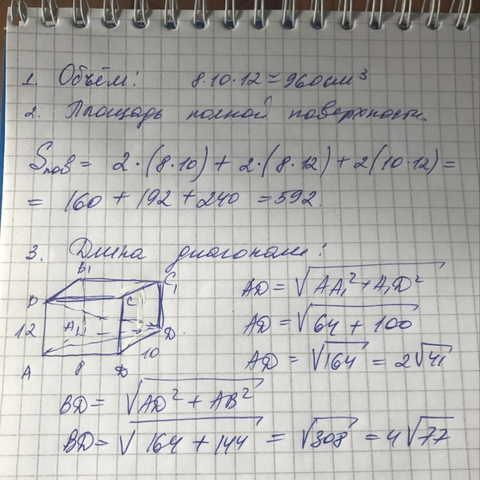 1. Объём: 8·10·12 = 960 см³
2. Площадь полной поверхности.
Sпов = 2·(8·10) + 2·(8·12) + 2(10·12) =
= 160 + 192 + 240 = 592.
3. Длина диагонали:
B₁ C₁
B C
12 A₁ D
A 8 D 10
AD = √AA₁² + A₁D²
AD = √64 + 100
AD = √164 = 2√41
BD = √AD² + AB²
BD = √164 + 144 = √308 = 4√77